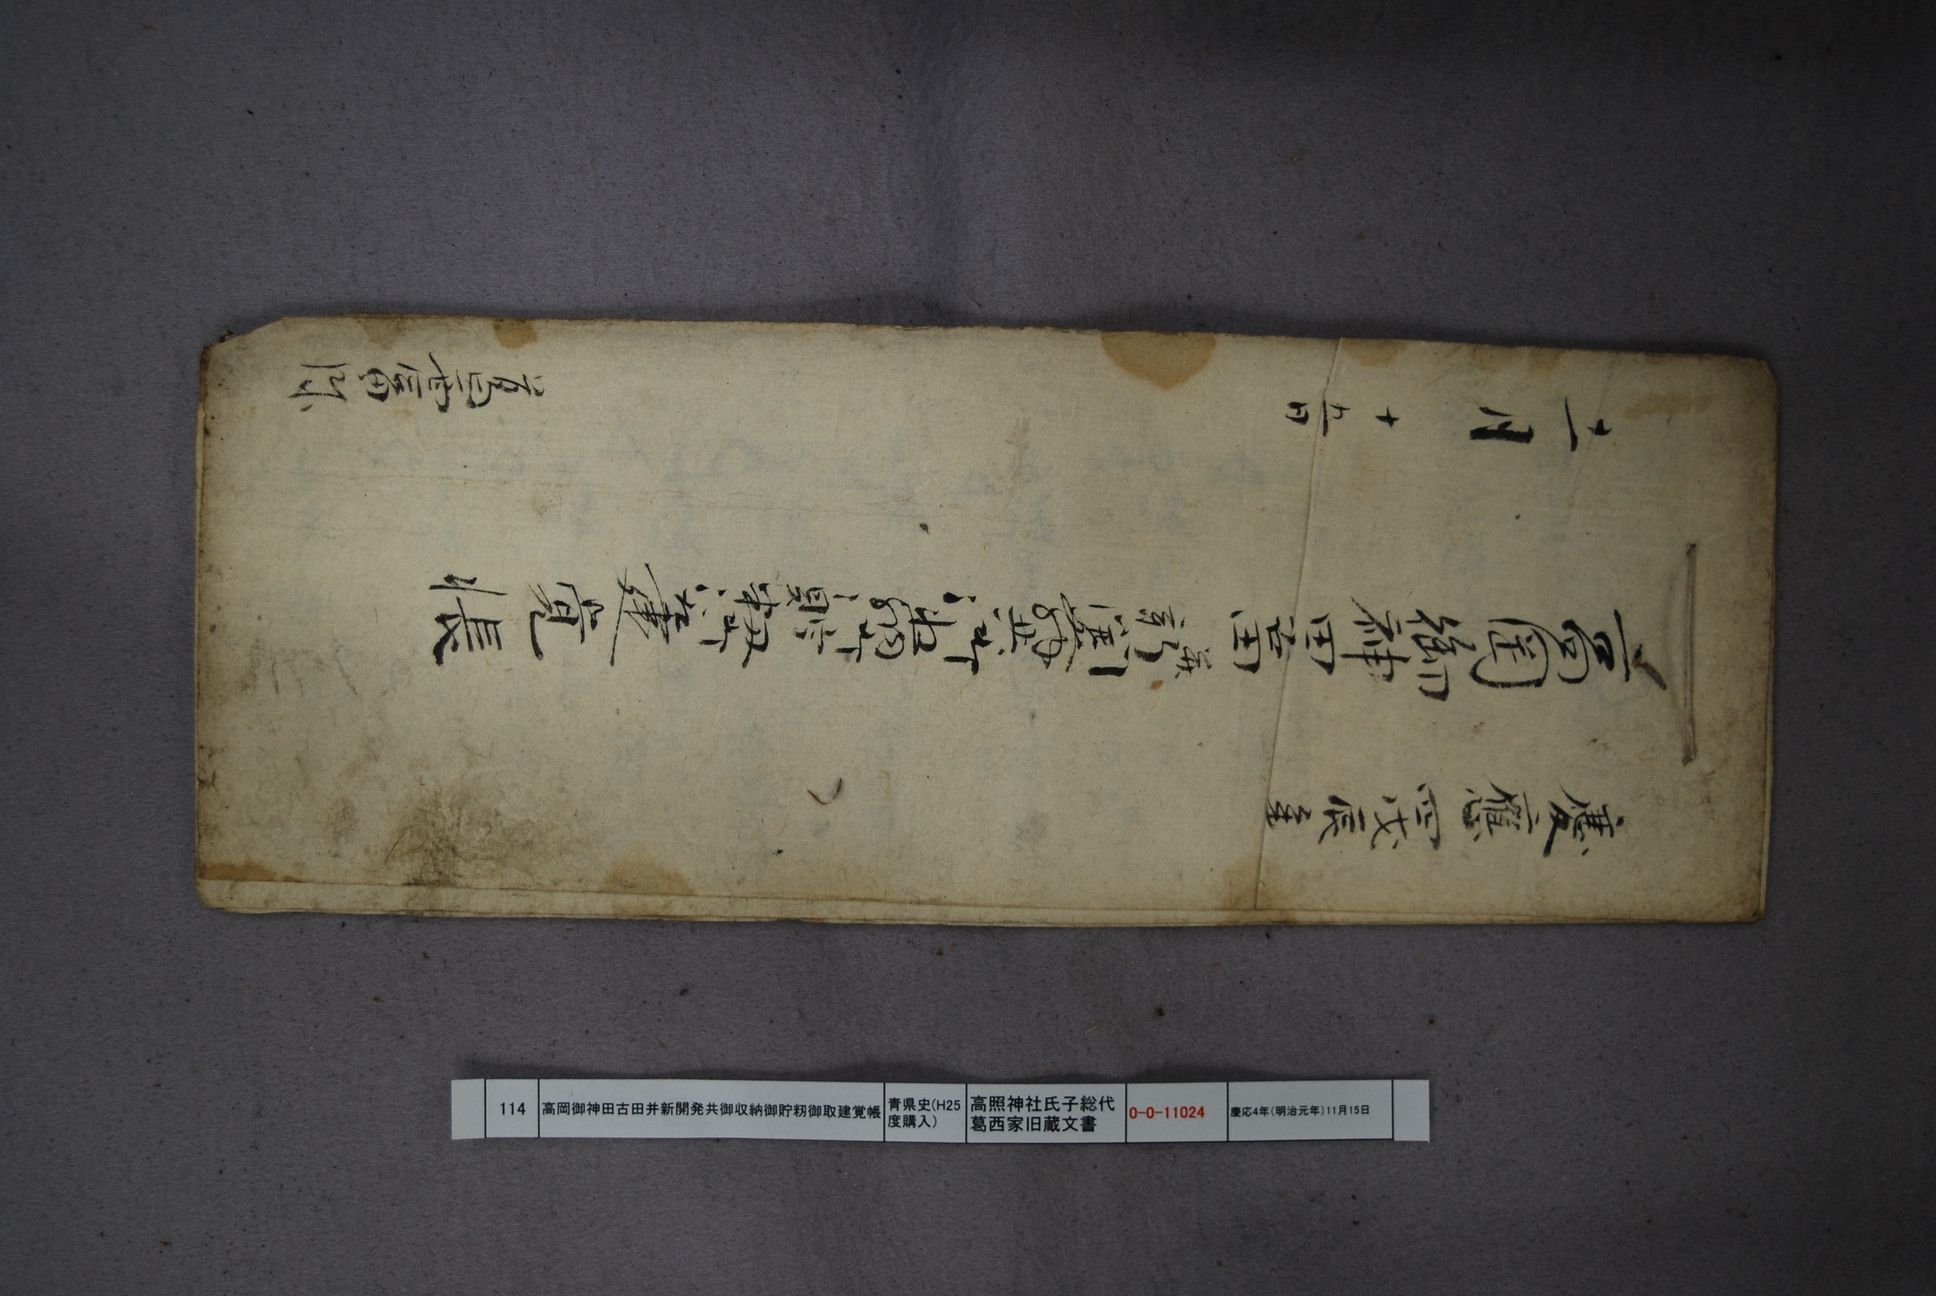 慶應四戊辰年
高岡御神田古田
并新開發共御
収納御貯籾御取建覚帳
十一月十五日
葛西
114
高岡御神田古田并新開発共御収納御貯籾御取建覚帳
青県史(H25
度購入)
高照神社氏子総代
葛西家旧蔵文書
0-0-11024
慶応4年(明治元年)11月15日